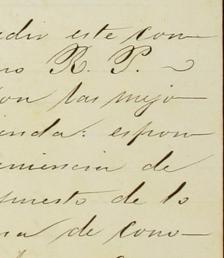 edir este con-
no R. P. ~
con las mejo-
ienda: espon-
eniencia de
puesto de lo
na de cono-